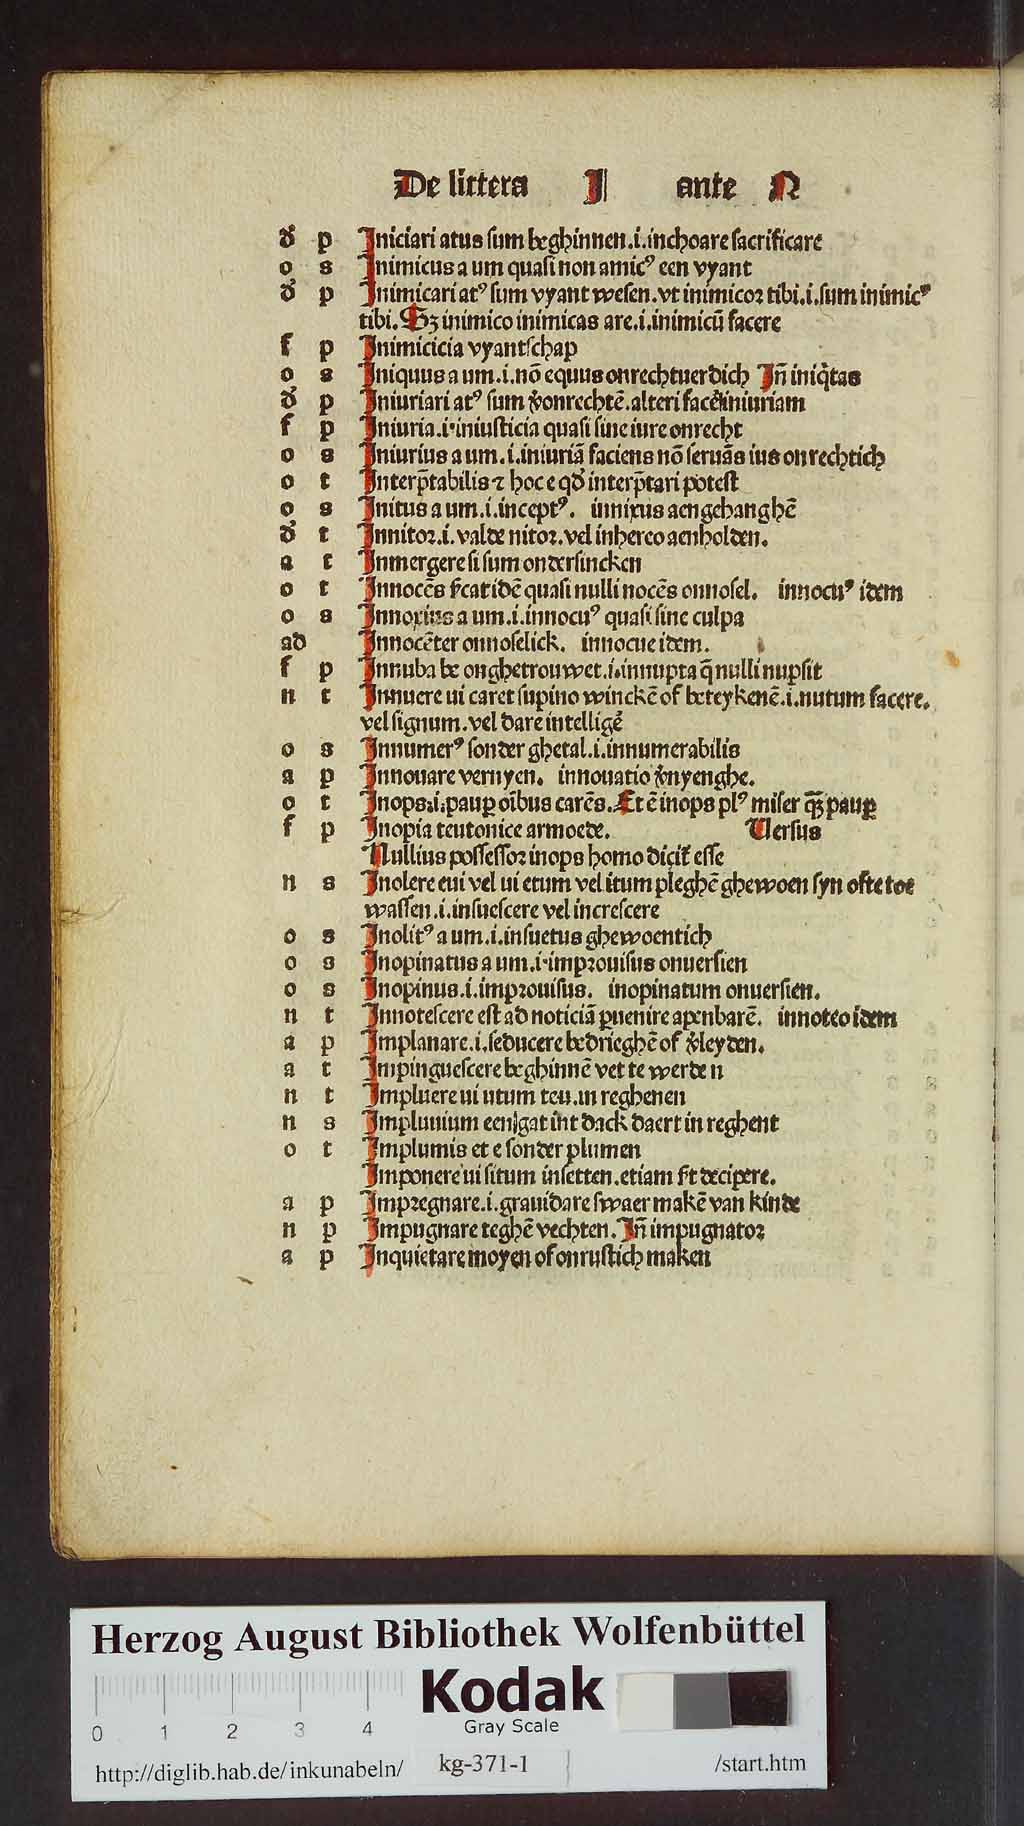 De littera I ante N
ď p Iniciari atus sum beghinnen.i.inchoare sacrificare
o s Inimicus a um quasi non amicꝰ een vyant
ď p Inimicari atꝰ sum vyant wesen.vt inimicoꝛ tibi.i.sum inimicꝰ
tibi. Sꝫ inimico inimicas are.i.inimicū facere
f p Inimicicia vyantschap
o s Iniquus a um.i.nō equus onrechtuerdich Iñ iniq̇tas
ď p Iniuriari atꝰ sum v̓onrechtē.alteri facē iniuriam
f p Iniuria.i.iniusticia quasi sine iure onrecht
o s Iniurius a um.i.iniuriā faciens nō seruās ius onrechtich
o t Interp̄tabilis ⁊ hoc e qď interp̄tari potest
o s Initus a um.i.inceptꝰ. innixus aengehanghē
ď t Innitoꝛ.i.valde nitoꝛ.vel inhereo aenholden.
a t Inmergere si sum ondersincken
o t Innocēs s̓cat idē quasi nulli nocēs onnosel. innocuꝰ idem
o s Innoxius a um.i.innocuꝰ quasi sine culpa
ad Innocēter onnoselick. innocue idem.
f p Innuba be onghetrouwet.i.innupta q̄ nulli nupsit
n t Innuere ui caret supino winckē of beteykenē.i.nutum facere.
vel signum.vel dare intellige᷑
o s Innumerꝰ sonder ghetal.i.innumerabilis
a p Innouare vernyen. innouatio v̓nyenghe.
o t Inops.i.paup̲ oībus carēs. Et ē inops plꝰ miser q̄ꝫ paup̲
f p Inopia teutonice armoede. Versus
Nullius possessoꝛ inops homo dicit᷑ esse
n s Inolere eui vel ui etum vel itum pleghē ghewoen syn ofte toe
wassen.i.insuescere vel increscere
o s Inolitꝰ a um.i.insuetus ghewoentich
o s Inopinatus a um.i.impꝛouisus onuersien
o s Inopinus.i.impꝛouisus. inopinatum onuersien.
n t Innotescere est ad noticiā ꝑuenire apenbarē. innoteo idem
a p Implanare.i.seducere bedrieghē of v̓leyden.
a t Impinguescere beghinnē vet te werden
n t Impluere ui utum teu.in reghenen
n s Impluuium een gat int dack daert in reghent
o t Implumis et e sonder plumen
Imponere ui situm insetten.etiam s̓t decipere.
a p Impꝛegnare.i.grauidare swaer makē van kinde
n p Impugnare teghē vechten. Iñ impugnatoꝛ
a p Inquietare moyen of onrustich maken
Herzog August Bibliothek Wolfenbüttel
Kodak
Gray Scale
0 1 2 3 4
http://diglib.hab.de/inkunabeln/ kg-371-1 /start.htm